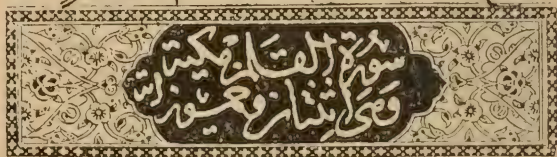 سورة القلم مكية
وهى اثنتان وخمسون اية